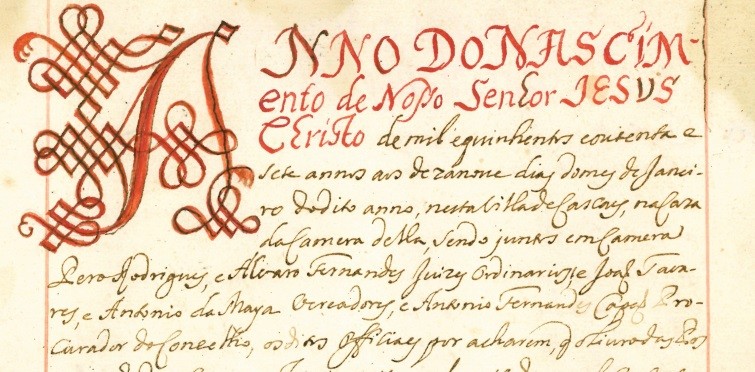 ANNO DO NASCIM-
ento de Nosso Senhor JESUS
Christo de mil e quinhentos e outenta e
sete annos aos dezanoue dias do mes de Janei-
ro do dito anno, nesta Villa de Cascaes, na Caza
da Camera della, sendo juntos em Camera
Pero Rodrigues, e Alvaro Fernandes Juizes Ordinarios, e Joaõ Tava-
res, e Antonio da Maya Vereadores, e Antonio Fernandes Pro-
curador do Concelho, os ditos Officiaes por acharem, q o Liuro das